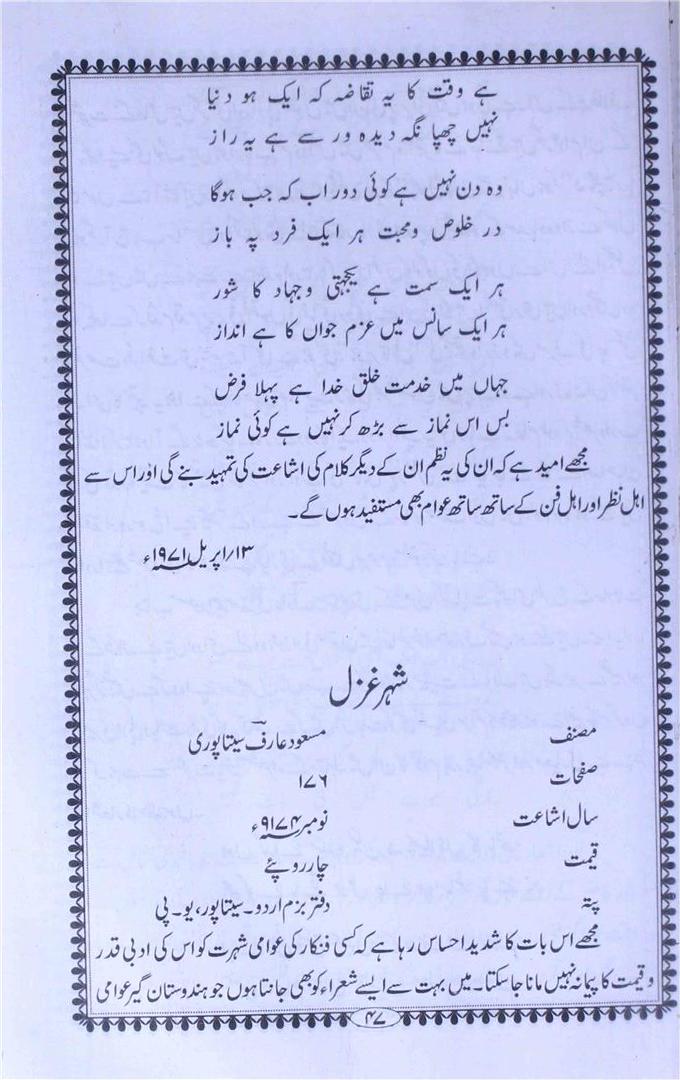 ہے وقت کا یہ تقاضہ کہ ایک ہو دنیا
نہیں چھپا نگہ دیدہ ور سے ہے یہ راز
وہ دن نہیں ہے کوئی دور اب کہ جب ہوگا
در خلوص و محبت ہر ایک فرد پہ باز
ہر ایک سمت ہے یکجہتی و جہاد کا شور
ہر ایک سانس میں عزم جواں کا ہے انداز
جہاں میں خدمت خلق خدا ہے پہلا فرض
بس اس نماز سے بڑھ کر نہیں ہے کوئی نماز
مجھے امید ہے کہ ان کی یہ نظم ان کے دیگر کلام کی اشاعت کی تمہید بنے گی اور اس سے
اہل نظر اور اہل فن کے ساتھ ساتھ عوام بھی مستفید ہوں گے۔
۱۳/اپریل ۱۹۷۱ء
شہر غزل
مصنف مسعود عارف سیتاپوری
صفحات ۱۷۶
سال اشاعت نومبر ۹۱۷۴ء
قیمت چار روپئے
پتہ دفتر بزم اردو۔ سیتاپور، یو۔ پی
مجھے اس بات کا شدید احساس رہا ہے کہ کسی فنکار کی عوامی شہرت کو اس کی ادبی قدر
و قیمت کا پیمانہ نہیں مانا جا سکتا۔ میں بہت سے ایسے شعراء کو بھی جانتا ہوں جو ہندوستان گیر عوامی
۴۷